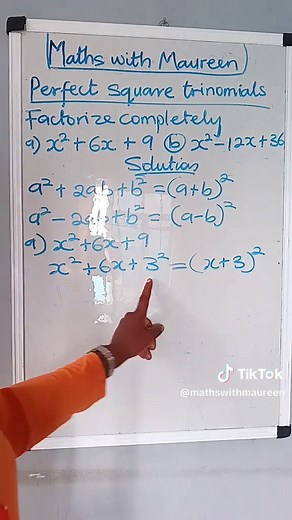 Maths with Maureen
Perfect Square trinomials
Factorize completely
a) x² + 6x + 9 (b) x² - 12x + 36
Solution
a² + 2ab + b² = (a + b)²
a² - 2ab + b² = (a - b)²
a) x² + 6x + 9
x² + 6x + 3² = (x + 3)²
TikTok
@mathswithmaureen